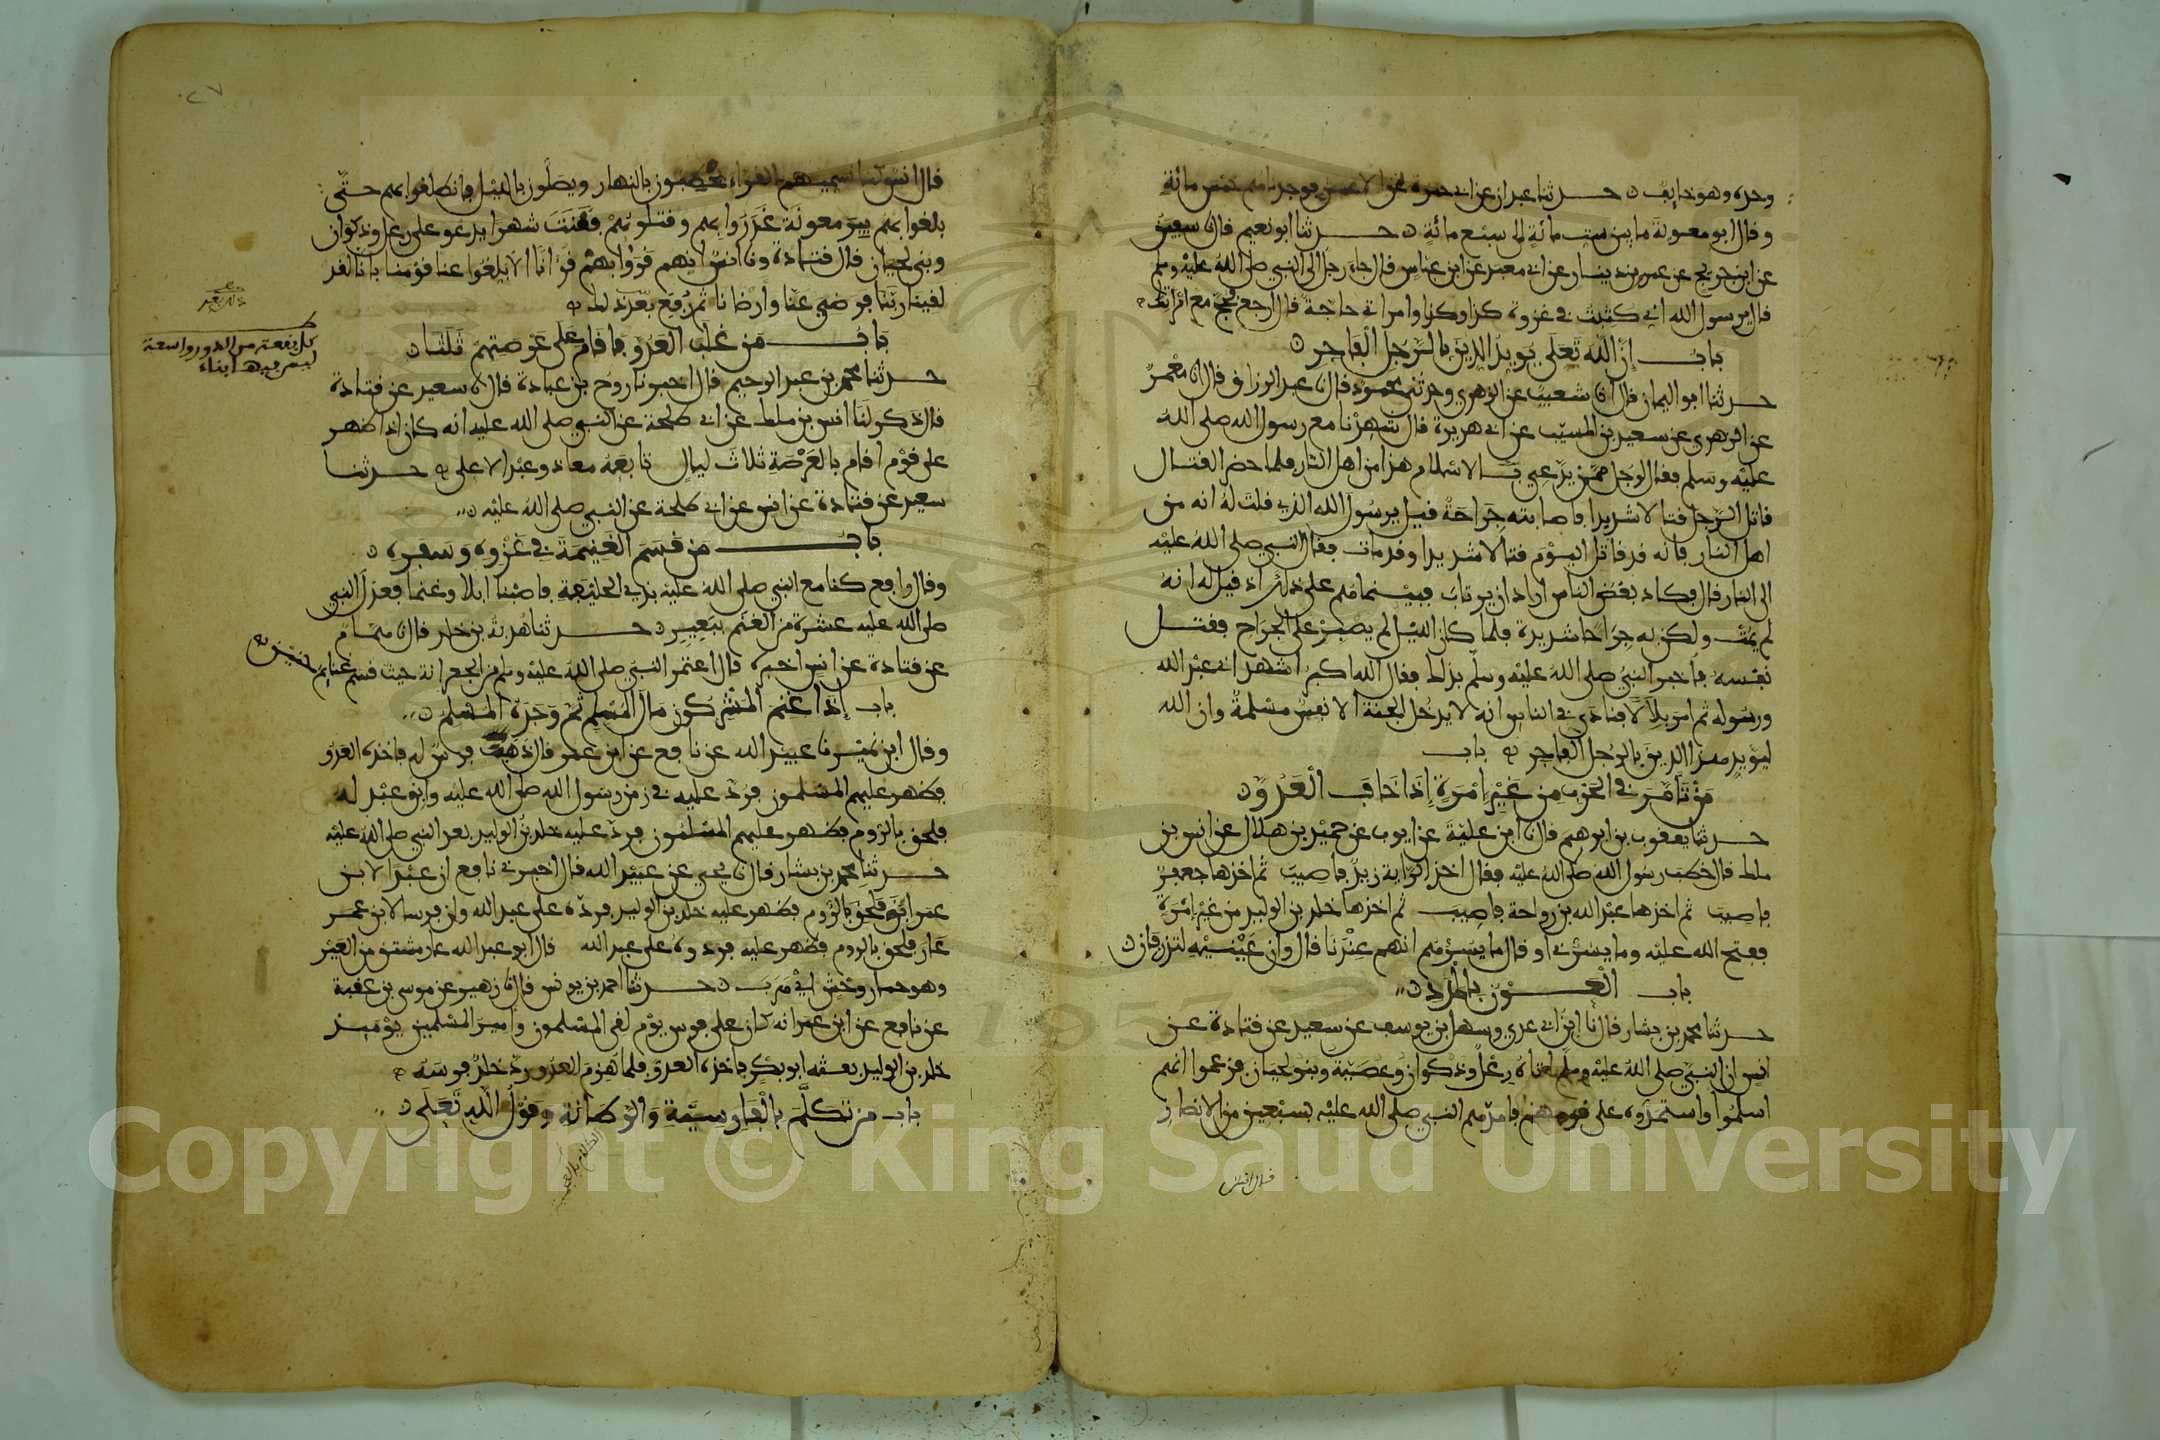 وحده وهو خايف حدثنا عبدان عن ابي حمزة عن الاعمش فوجدناهم خمس مائة
وقال ابو معوية ما بين ست مائة الى سبع مائة حدثنا ابو نعيم قال نا سفين
عن ابن جريج عن عمرو بن دينار عن ابي معبد عن ابن عباس قال جاء رجل الى النبي صلى الله عليه وسلم
فقال يرسول الله اني كتبت في غزوة كذا وكذا وامراتي حاجة قال ارجع فحج مع امراتك
باب إن الله تعلى يويد الدين بالرجل الفاجر
حدثنا ابو اليمان قال انا شعيب عن الزهري وحدثني محمود قال نا عبد الرزاق قال انا معمر
عن الزهري عن سعيد بن المسيب عن ابي هريرة قال شهدنا مع رسول الله صلى الله
عليه وسلم فقال لرجل ممن يدعي بالاسلام هذا من اهل النار فلما حضر القتال
قاتل الرجل قتالا شديدا فاصابته جراحة فقيل يرسول الله الذي قلت له انه من
اهل النار فانه قد قاتل اليوم قتالا شديدا وقد مات فقال النبي صلى الله عليه
الى النار قال فكاد بعض الناس اراد ان يرتاب فبينما هم على ذلك اذ قيل له انه
لم يمت ولكن به جراحا شديدة فلما كان الليل لم يصبر على الجراح فقتل
نفسه فاخبر النبي صلى الله عليه وسلم بذلك فقال الله اكبر اشهد اني عبد الله
ورسوله ثم امر بلالا فنادى في الناس انه لا يدخل الجنة الا نفس مسلمة وان الله
ليويد هذا الدين بالرجل الفاجر باب
من تامر في الحرب من غير إمرة إذا خاف العدو
حدثنا يعقوب بن ابرهيم قال نا ابن علية عن ايوب عن حميد بن هلال عن انس بن
ملك قال خطب رسول الله صلى الله عليه فقال اخذ الراية زيد فاصيب ثم اخذها جعفر
فاصيب ثم اخذها عبد الله بن رواحة فاصيب ثم اخذها خلد بن الوليد من غير إمرة
ففتح الله عليه وما يسرني او قال ما يسرهم انهم عندنا قال وإن عينيه لتذرفان
باب العون بالمدد
حدثنا محمد بن بشار قال نا ابن ابي عدي وسهل بن يوسف عن سعيد عن قتادة عن
انس ان النبي صلى الله عليه وسلم اتاه رعل وذكوان وعصية وبنو لحيان فزعموا انهم
اسلموا واستمدوه على قومهم فامدهم النبي صلى الله عليه بسبعين من الانصار
قال انس
قال انس كنا نسميهم القراء يحطبون بالنهار ويصلون بالليل فانطلقوا بهم حتى
بلغوا بهم بير معونة غدروا بهم وقتلوهم فقنت شهرا يدعو على رعل وذكوان
وبني لحيان قال قتادة ونا انس انهم قروا بهم قرانا الا بلغوا عنا قومنا بانا قد
لقينا ربنا فرضي عنا وارضانا ثم رفع بعد ذلك
باب من غلب العدو فاقام على عرصتهم ثلثا
حدثنا محمد بن عبد الرحيم قال اخبرنا روح بن عبادة قال نا سعيد عن قتادة
قال ذكر لنا انس بن ملك عن ابي طلحة عن النبي صلى الله عليه انه كان اذا ظهر
على قوم اقام بالعرصة ثلاث ليال تابعه معاذ وعبد الاعلى حدثنا
سعيد عن قتادة عن انس عن ابي طلحة عن النبي صلى الله عليه
باب من قسم الغنيمة في غزوه وسفره
وقال رافع كنا مع النبي صلى الله عليه بذي الحليفة فاصبنا ابلا وغنما فعدل النبي
صلى الله عليه عشرة من الغنم ببعير حدثنا هدبة بن خلد قال نا همام
عن قتادة عن انس اخبره قال اعتمر النبي صلى الله عليه وسلم من الجعرانة حيث قسم غنايم حنين
باب إذا غنم المشركون مال المسلم ثم وجده المسلم
وقال ابن نمير نا عبيد الله عن نافع عن ابن عمر قال ذهب فرس له فاخذه العدو
فظهر عليهم المسلمون فرد عليه في زمن رسول الله صلى الله عليه وابق عبد له
فلحق بالروم فظهر عليهم المسلمون فرد عليه خلد بن الوليد بعد النبي صلى الله عليه
حدثنا محمد بن بشار قال نا يحيى عن عبيد الله قال اخبرني نافع ان عبدا لابن
عمر ابق فلحق بالروم فظهر عليه خلد بن الوليد فرده على عبد الله وان فرسا لابن عمر
عار فلحق بالروم فظهر عليه فردوه على عبد الله قال ابو عبد الله عار مشتق من العير
وهو حمار وحش اي هرب حدثنا احمد بن يونس قال نا زهير عن موسى بن عقبة
عن نافع عن ابن عمر انه كان على فرس يوم لقي المسلمون وامير المسلمين يوميذ
خلد بن الوليد بعثه ابو بكر فاخذه العدو فلما هزم العدو رد خلد فرسه
باب من تكلم بالفارسية والرطانة وقول الله تعلى
كل بقعة من الدور واسعة
ليس فيها بناء
Copyright © King Saud University
1957